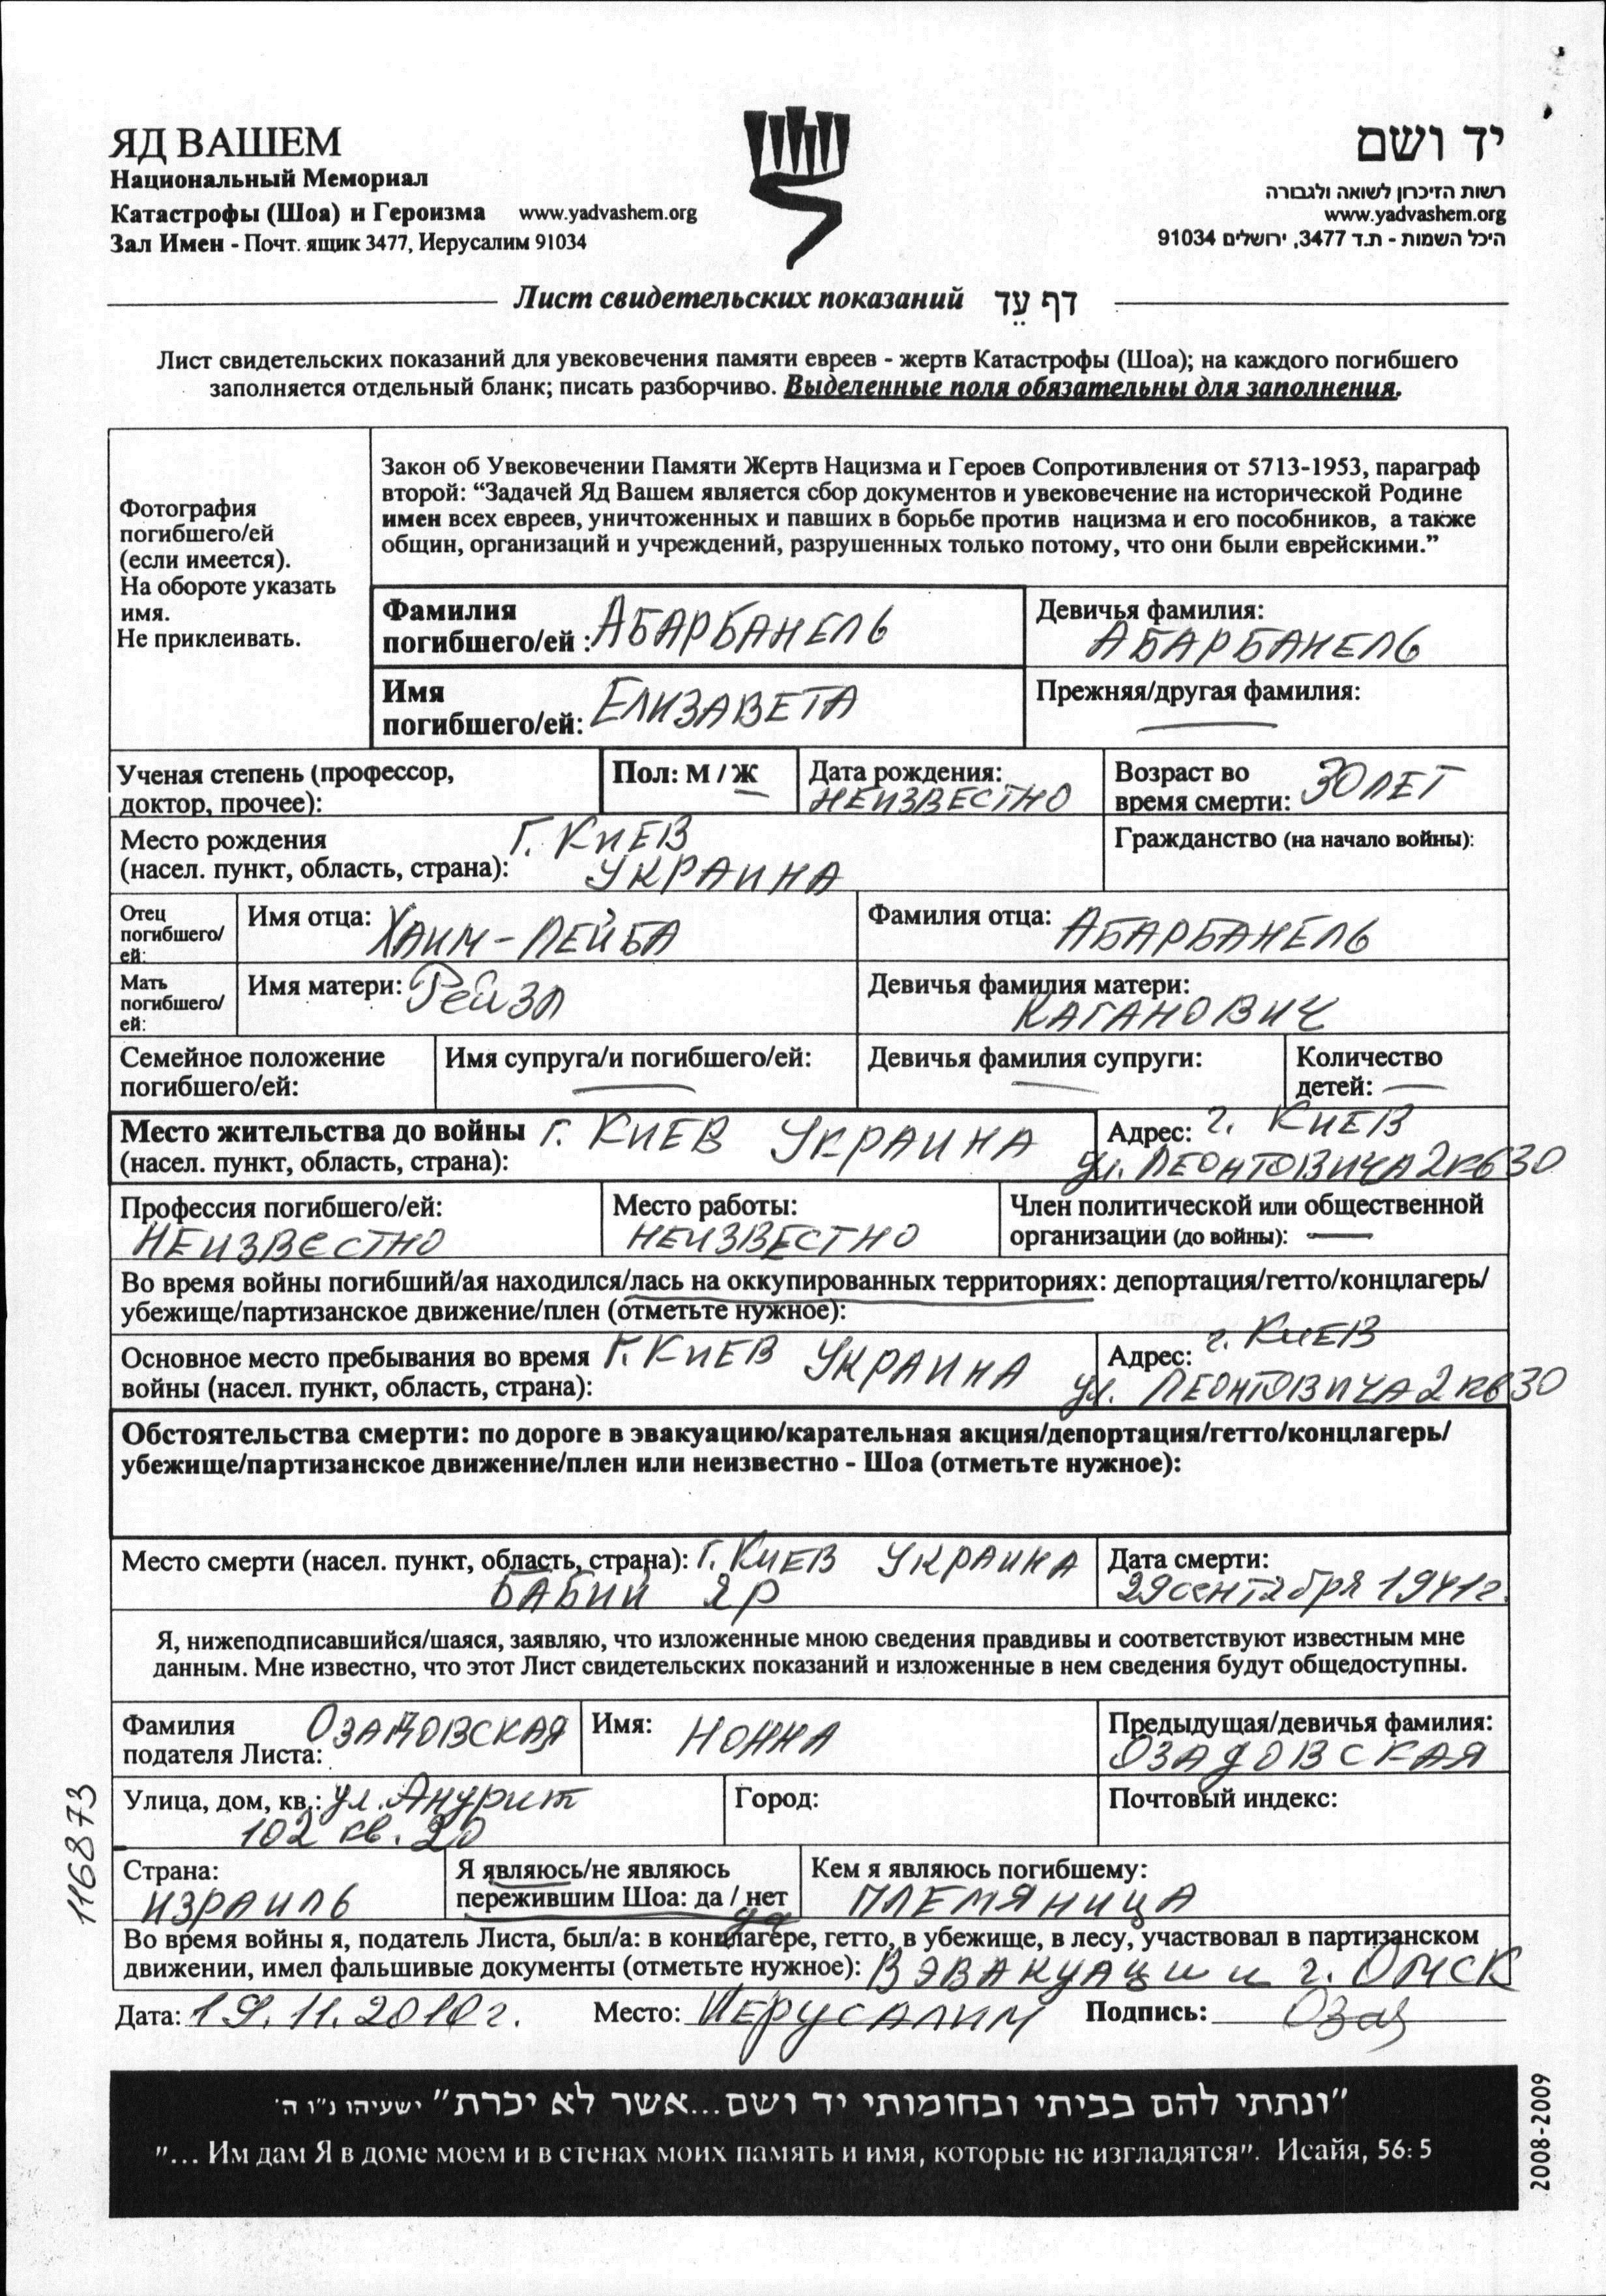 ЯД ВАШЕМ
Национальный Мемориал
Катастрофы (Шоа) и Героизма www.yadvashem.org
Зал Имен - Почт. ящик 3477, Иерусалим 91034
יד ושם
רשות הזיכרון לשואה ולגבורה
www.yadvashem.org
היכל השמות - ת.ד 3477, ירושלים 91034
Лист свидетельских показаний דף עֵד
Лист свидетельских показаний для увековечения памяти евреев - жертв Катастрофы (Шоа); на каждого погибшего
заполняется отдельный бланк; писать разборчиво. Выделенные поля обязательны для заполнения.
Фотография
погибшего/ей
(если имеется).
На обороте указать
имя.
Не приклеивать.
Закон об Увековечении Памяти Жертв Нацизма и Героев Сопротивления от 5713-1953, параграф
второй: “Задачей Яд Вашем является сбор документов и увековечение на исторической Родине
имен всех евреев, уничтоженных и павших в борьбе против нацизма и его пособников, а также
общин, организаций и учреждений, разрушенных только потому, что они были еврейскими.”
Фамилия
погибшего/ей : АБАРБАНЕЛЬ
Девичья фамилия:
АБАРБАНЕЛЬ
Имя
погибшего/ей: ЕЛИЗАВЕТА
Прежняя/другая фамилия:
—
Ученая степень (профессор,
доктор, прочее):
Пол: М / Ж
Дата рождения:
НЕИЗВЕСТНО
Возраст во
время смерти: 30 ЛЕТ
Место рождения Г. КИЕВ
(насел. пункт, область, страна): УКРАИНА
Гражданство (на начало войны):
Отец
погибшего/
ей:
Имя отца: ХАИМ-ЛЕЙБА
Фамилия отца: АБАРБАНЕЛЬ
Мать
погибшего/
ей:
Имя матери: Рейзл
Девичья фамилия матери:
КАГАНОВИЧ
Семейное положение
погибшего/ей:
Имя супруга/и погибшего/ей:
—
Девичья фамилия супруги:
—
Количество
детей: —
Место жительства до войны Г. КИЕВ УКРАИНА
(насел. пункт, область, страна):
Адрес: г. КИЕВ
ул. ЛЕОНТОВИЧА 2 кв 30
Профессия погибшего/ей:
НЕИЗВЕСТНО
Место работы:
НЕИЗВЕСТНО
Член политической или общественной
организации (до войны): —
Во время войны погибший/ая находился/лась на оккупированных территориях: депортация/гетто/концлагерь/
убежище/партизанское движение/плен (отметьте нужное):
Основное место пребывания во время Г. КИЕВ УКРАИНА
войны (насел. пункт, область, страна):
Адрес: г. КИЕВ
ул. ЛЕОНТОВИЧА 2 кв 30
Обстоятельства смерти: по дороге в эвакуацию/карательная акция/депортация/гетто/концлагерь/
убежище/партизанское движение/плен или неизвестно - Шоа (отметьте нужное):
Место смерти (насел. пункт, область, страна): Г. КИЕВ УКРАИНА
БАБИЙ ЯР
Дата смерти:
29 сентября 1941г.
Я, нижеподписавшийся/шаяся, заявляю, что изложенные мною сведения правдивы и соответствуют известным мне
данным. Мне известно, что этот Лист свидетельских показаний и изложенные в нем сведения будут общедоступны.
Фамилия
подателя Листа: ОЗАДОВСКАЯ
Имя: НОННА
Предыдущая/девичья фамилия:
ОЗАДОВСКАЯ
Улица, дом, кв.: ул. Анурит
102 кв. 20
Город:
Почтовый индекс:
Страна:
ИЗРАИЛЬ
Я являюсь/не являюсь
пережившим Шоа: да / нет
да
Кем я являюсь погибшему:
ПЛЕМЯНИЦА
Во время войны я, податель Листа, был/а: в концлагере, гетто, в убежище, в лесу, участвовал в партизанском
движении, имел фальшивые документы (отметьте нужное): В ЭВАКУАЦИИ г. ОМСК
Дата: 19.11.2010г. Место: ИЕРУСАЛИМ Подпись: Оза
116873
"ונתתי להם בביתי ובחומותי יד ושם...אשר לא יכרת" ישעיהו נ"ו ה'
"... Им дам Я в доме моем и в стенах моих память и имя, которые не изгладятся". Исайя, 56: 5
2008-2009